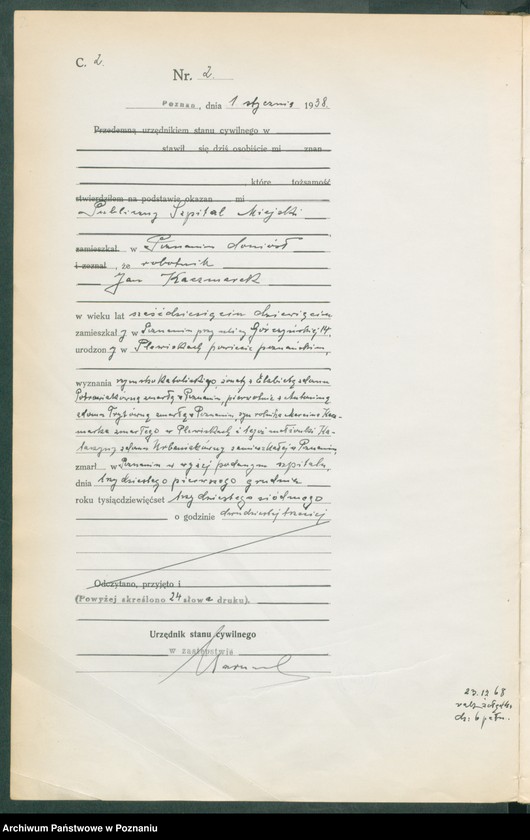 C. 2.
Nr. 2.
Poznań, dnia 1 stycznia 1938.
Przedemną urzędnikiem stanu cywilnego w
stawił się dziś osobiście mi znan
, które tożsamość
stwierdziłem na podstawie okazan mi
Publiczny Szpital Miejski
zamieszkał w Poznaniu doniósł
i zeznał, że robotnik
Jan Kaczmarek
w wieku lat sześćdziesięciu dziewięciu
zamieszkał y w Poznaniu przy ulicy Górczyńskiej 14,
urodzon y w Plewiskach powiecie poznańskim,
wyznania rzymskokatolickiego, żonaty z Elżbietą z domu
zmarłą w Poznaniu, pierwotnie z Antoniną
z domu zmarłą w Poznaniu, syn rolnika Marcina Kacz-
marka zmarłego w Plewiskach i tegoż małżonki Ka-
tarzyny z domu Urbaniakówny zamieszkałej w Poznaniu
zmarł w Poznaniu w wyżej podanym szpitalu,
dnia trzydziestego pierwszego grudnia
roku tysiącdziewięćset trzydziestego siódmego
o godzinie dwudziestej trzeciej
Odczytano, przyjęto i
(Powyżej skreślono 24 słowa druku).
Urzędnik stanu cywilnego
w zastępstwie
23.12.68
Archiwum Państwowe w Poznaniu